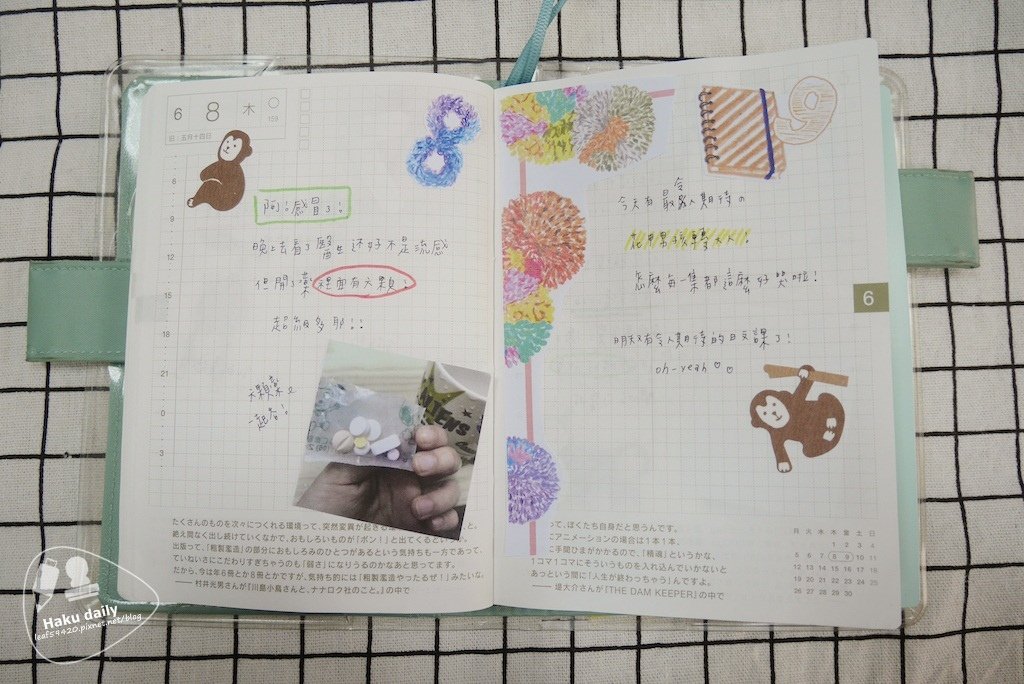 6 8 木
159
旧:五月十四日
阿!感冒了!
晚上去看了醫生 还好不是流感
但開了藥裡面有六顆!
超級多耶!!
一起吞!
6
9
12
15
18
21
0
3
たくさんのものを次々につくれる環境って、突然変異が起き
絶え間なく出し続けていくなかで、おもしろいものが「ポン!」と出てくる
出版って、「粗製濫造」の部分におもしろみのひとつがあるという気持ちも一方であって、
ていねいさにこだわりすぎちゃうのも「弱さ」になりうるのかなあと思ってます。
だから、今は年6冊とか8冊とかですが、気持ち的には「粗製濫造やったるぜ!」みたいな。
——村井光男さんが『川島小鳥さんと、ナナロク社のこと。』の中で
9
今天有最令人期待の
花甲男孩轉大人!
怎麼每一集都這麼好哭啦!
明天又有令人期待的日文課了!
oh-yeah ♡♡
6
って、ぼくたち自身だと思うんです。
アニメーションの場合は1本1本、
手間ひまがかかるので、「精魂」というかな、
1コマ1コマにそういうものを入れ込んでいかないと
あっという間に「人生が終わっちゃう」んですよ。
——堤大介さんが『THE DAM KEEPER』の中で
月 火 水 木 金 土 日
1 2 3 4
5 6 7 8 9 10 11
12 13 14 15 16 17 18
19 20 21 22 23 24 25
26 27 28 29 30
Haku daily
leaf59420.pixnet.net/blog